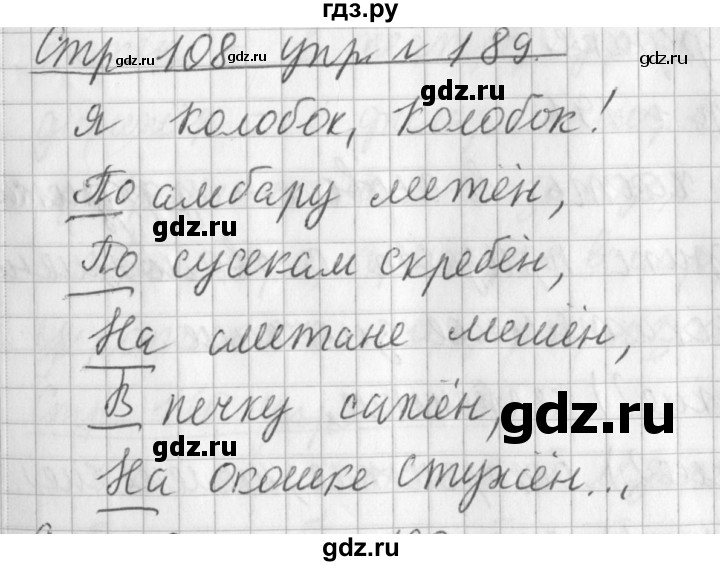 гдз.ру
Стр 108 упр. № 189.
gdz.ru
gdz.ru
gdz.ru
gdz.ru
Я колобок, колобок!
По амбару метён,
gdz.ru
По сусекам скребён,
На сметане мешён,
В печку сажён,
gdz.ru
gdz.ru
На окошке стужён...
gdz.ru